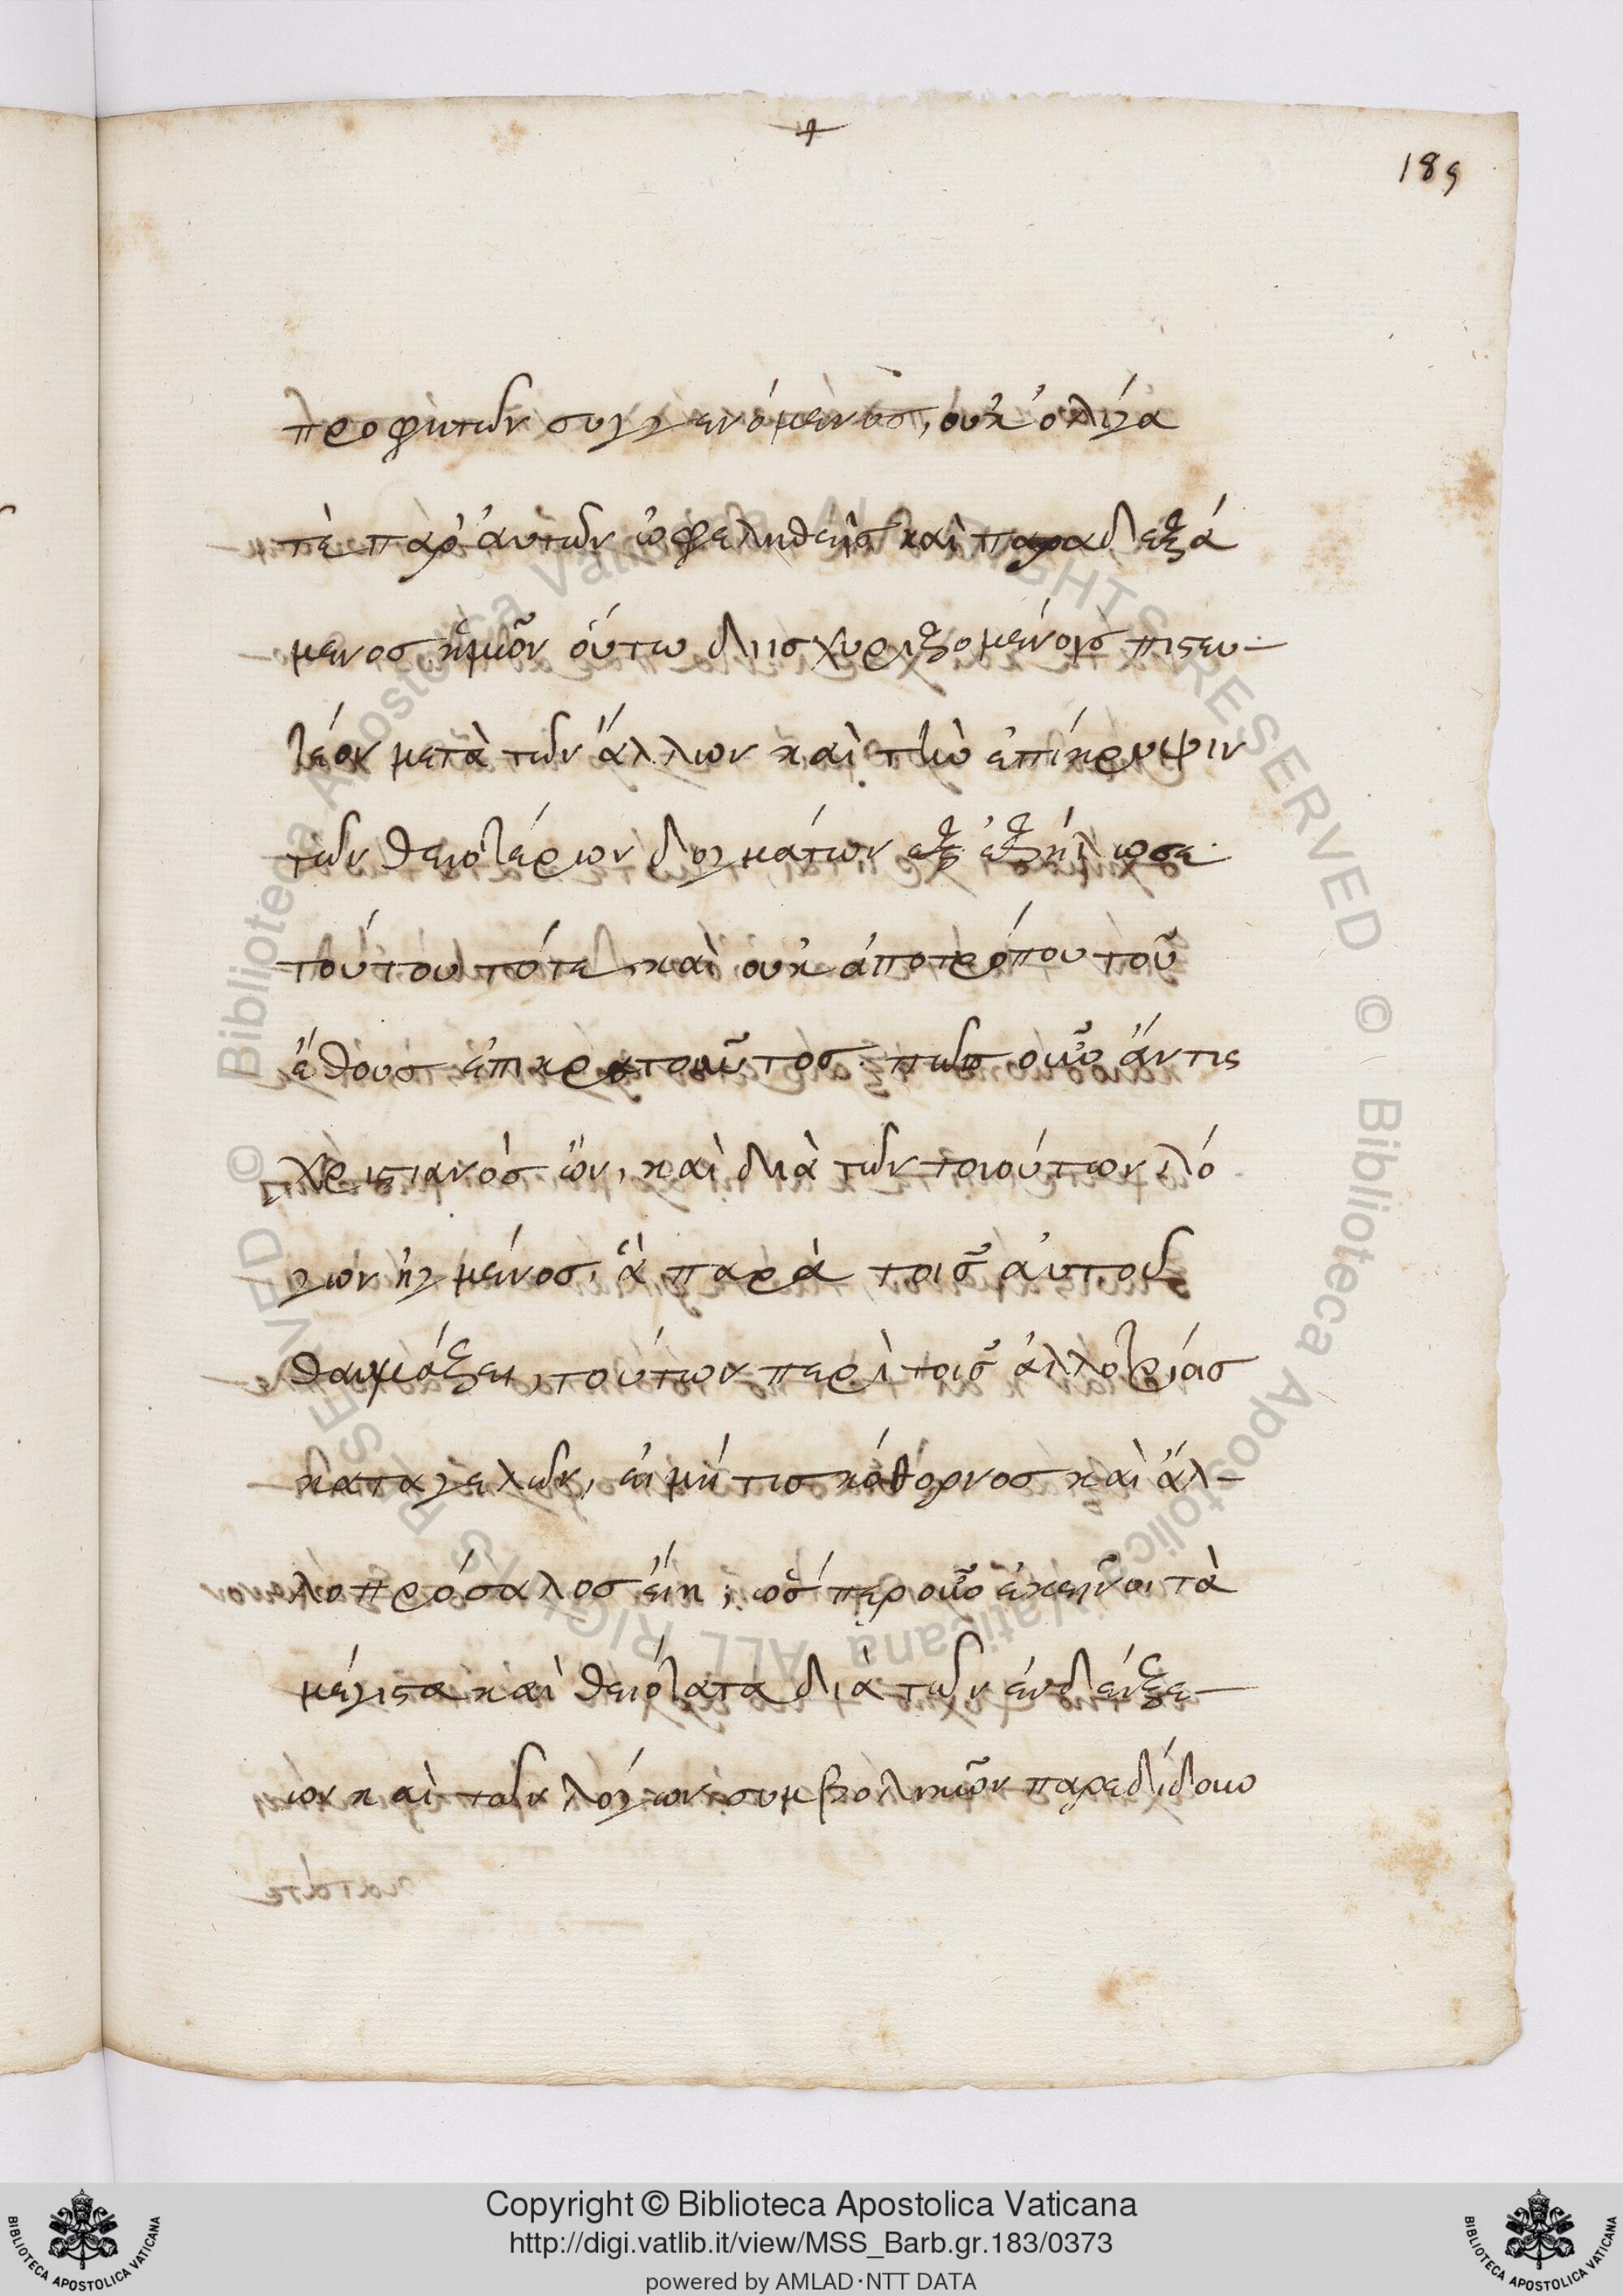 189
προφητῶν συγγενόμενος, οὐκ ὀλίγα
τὲ παρ' ἀυτῶν ὠφεληθεὶς καὶ παραδεξά
μενος ἡμῖν ὅυτω διισχυριζομένοις πιστευ-
τέον μετὰ τῶν ἄλλων καὶ τὴν ἐπίκρυψιν
τῶν θειοτέρων δογμάτων ἐξ ἐζήλωσε
τούτου τότε καὶ οὐκ ἀποτρόπου τοῦ
ἔθους ἐπικρατοῦντος. πῶς οὖν ἄν τις
χριστιανὸς ὢν, καὶ διὰ τῶν τοιούτων λό
γων ἠγμένος, ἃ παρὰ τοῖς ἀυτοῦ
θαυμάζει, τούτων περὶ τοῖς ἀλλοτρίοις
καταγελῶν, εἰ μή τις κόθορνος καὶ ἀλ-
λοπρόσαλος εἴη; ὥσπερ οὖν ἐκεῖνοι τὰ
μέγιστα καὶ θειότατα διὰ τῶν ἐνδείξε-
ων καὶ τῶν λόγων συμβολικῶν παρεδίδουν
Copyright © Biblioteca Apostolica Vaticana
http://digi.vatlib.it/view/MSS_Barb.gr.183/0373
powered by AMLAD·NTT DATA
BIBLIOTECA APOSTOLICA VATICANA
BIBLIOTECA APOSTOLICA VATICANA
© Biblioteca Apostolica Vaticana ALL RIGHTS RESERVED © Biblioteca Apostolica Vaticana ALL RIGHTS RESERVED